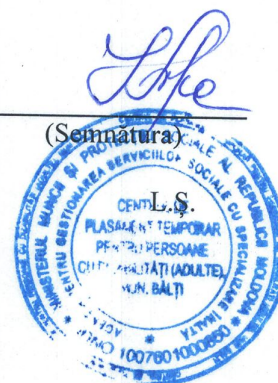 (Semnătura)
L.Ș.
MINISTERUL MUNCII ȘI PROTECȚIEI SOCIALE AL REPUBLICII MOLDOVA
GESTIONAREA SERVICIILOR SOCIALE CU SPECIALIZARE ÎNALTĂ
1007601000850
PLASAMENT TEMPORAR
PENTRU PERSOANE
CU DIZABILITĂȚI (ADULTE),
MUN. BĂLȚI